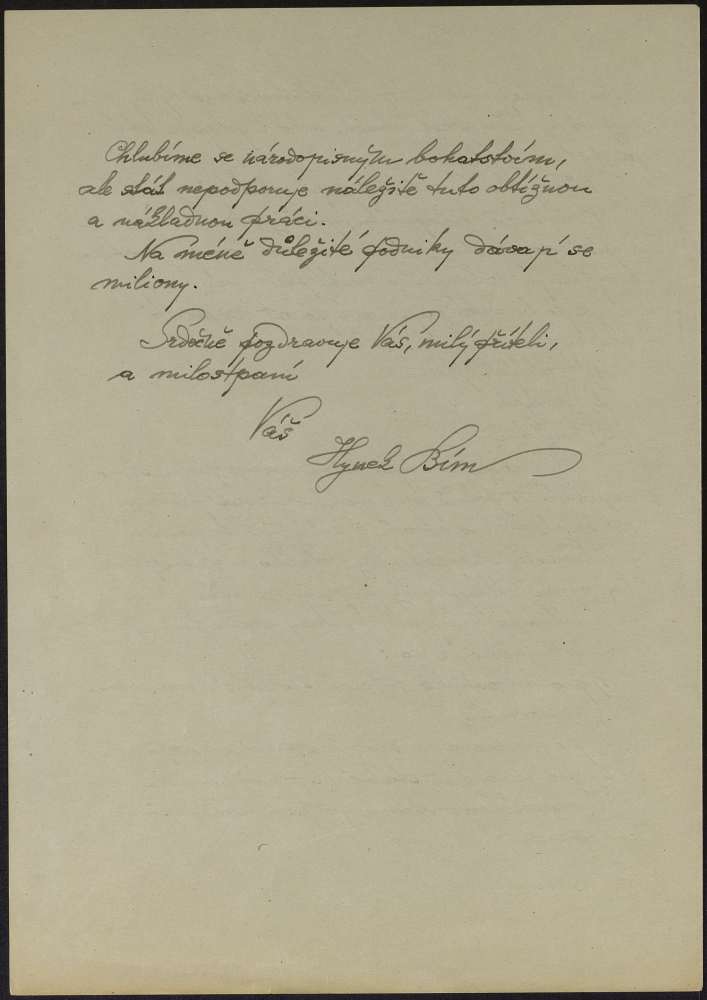 Chlubíme se národopisným bohatstvím,
ale stát nepodporuje náležitě tuto obtížnou
a nákladnou práci.
Na méně důležité podniky dávají se
miliony.
Srdečně pozdravuje Vás, milý příteli,
a milostpaní
Váš
Hynek Bím